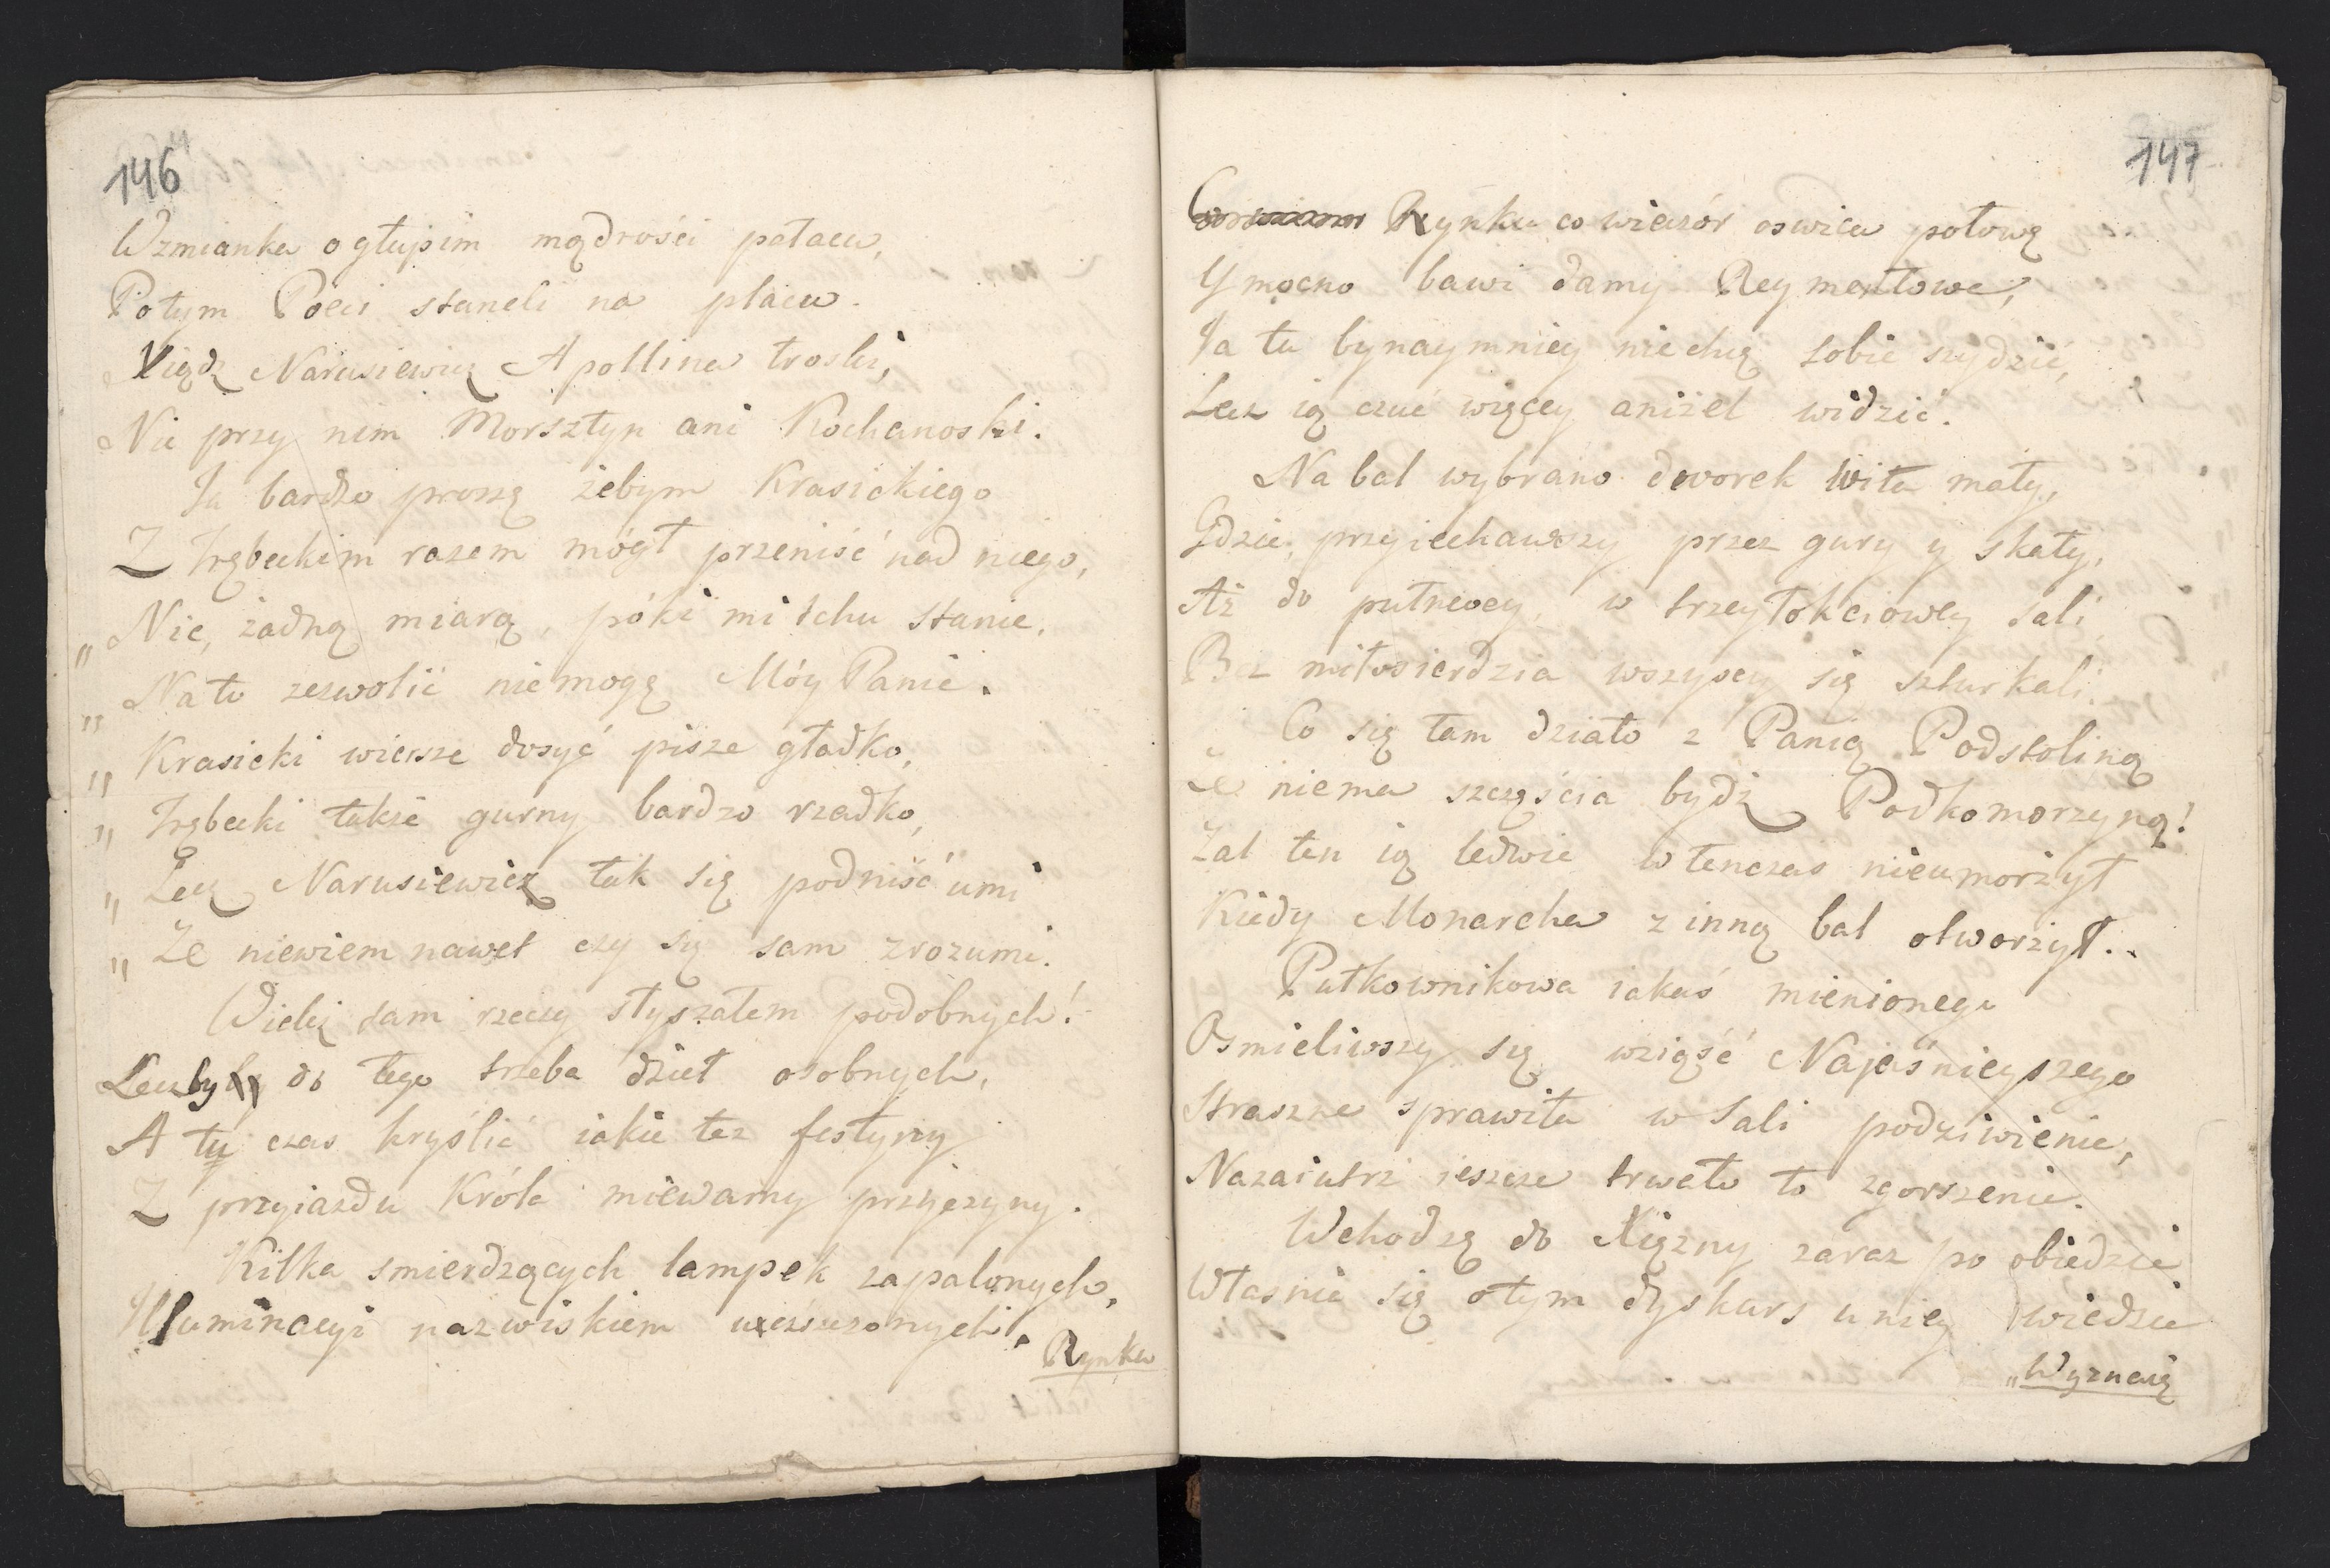 146
Wzmianka o głupim mądrości pałacu,
Potym Poeci staneli na placu.
Xiądz Narusiewicz Apollina troski,
Nic przy nim Morsztyn ani Kochanoski.
Ja bardzo proszę żebym Krasickiego
Z Trębeckim razem mógł przenisć nad niego,
„ Nie, żadną miarą, póki mi tchu stanie,
„ Na to zezwolić niemogę Móy Panie.
„ Krasicki wiersze dosyć pisze gładko,
„ Trębecki także gurny bardzo rzadko,
„ Lecz Narusiewicz tak się podniść umi
„ Ze niewiem nawet czy się sam zrozumi.
Wielą sam rzeczy słyszałem podobnych!
Leczby do tego trzeba dzieł osobnych,
A tu czas kryślić iakie tez festyny
Z przyiazdu Króla miewamy przyczyny.
Kilka smierdzących lampek zapalonych,
Illuminacyi nazwiskiem uczszczonych.
Rynku
147
Rynku co wieczór oswica połowę
Y mocno bawi damy Reymentowe,
Ja tu bynaymniey niechcę sobie szydzić,
Lecz ią czuć więcey aniżel widzić.
Na bal wybrano dworek Wita mały,
Gdzie, przyiechawszy przez gury y skały,
Aż do pułnocy, w trzeyłokciowey sali
Bez miłosierdzia wszyscy się szturkali.
Co się tam działo z Panią Podstoliną
Że niema szczęścia bydź Podkomorzyną!
Żal ten ią ledwie wtenczas nieumorzył
Kiedy Monarcha z inną bal otworzył..
Pułkownikowa iakaś mienionego
Osmieliwszy się wziąść Najaśnieyszego
Straszne sprawiła w Sali podziwienie,
Nazaiutrz ieszcze trwało to zgorszenie.
Wchodzę do Xiężny zaraz po obiedzie
Własnie się otym dyskurs u niey wiedzie
„Wyznaię